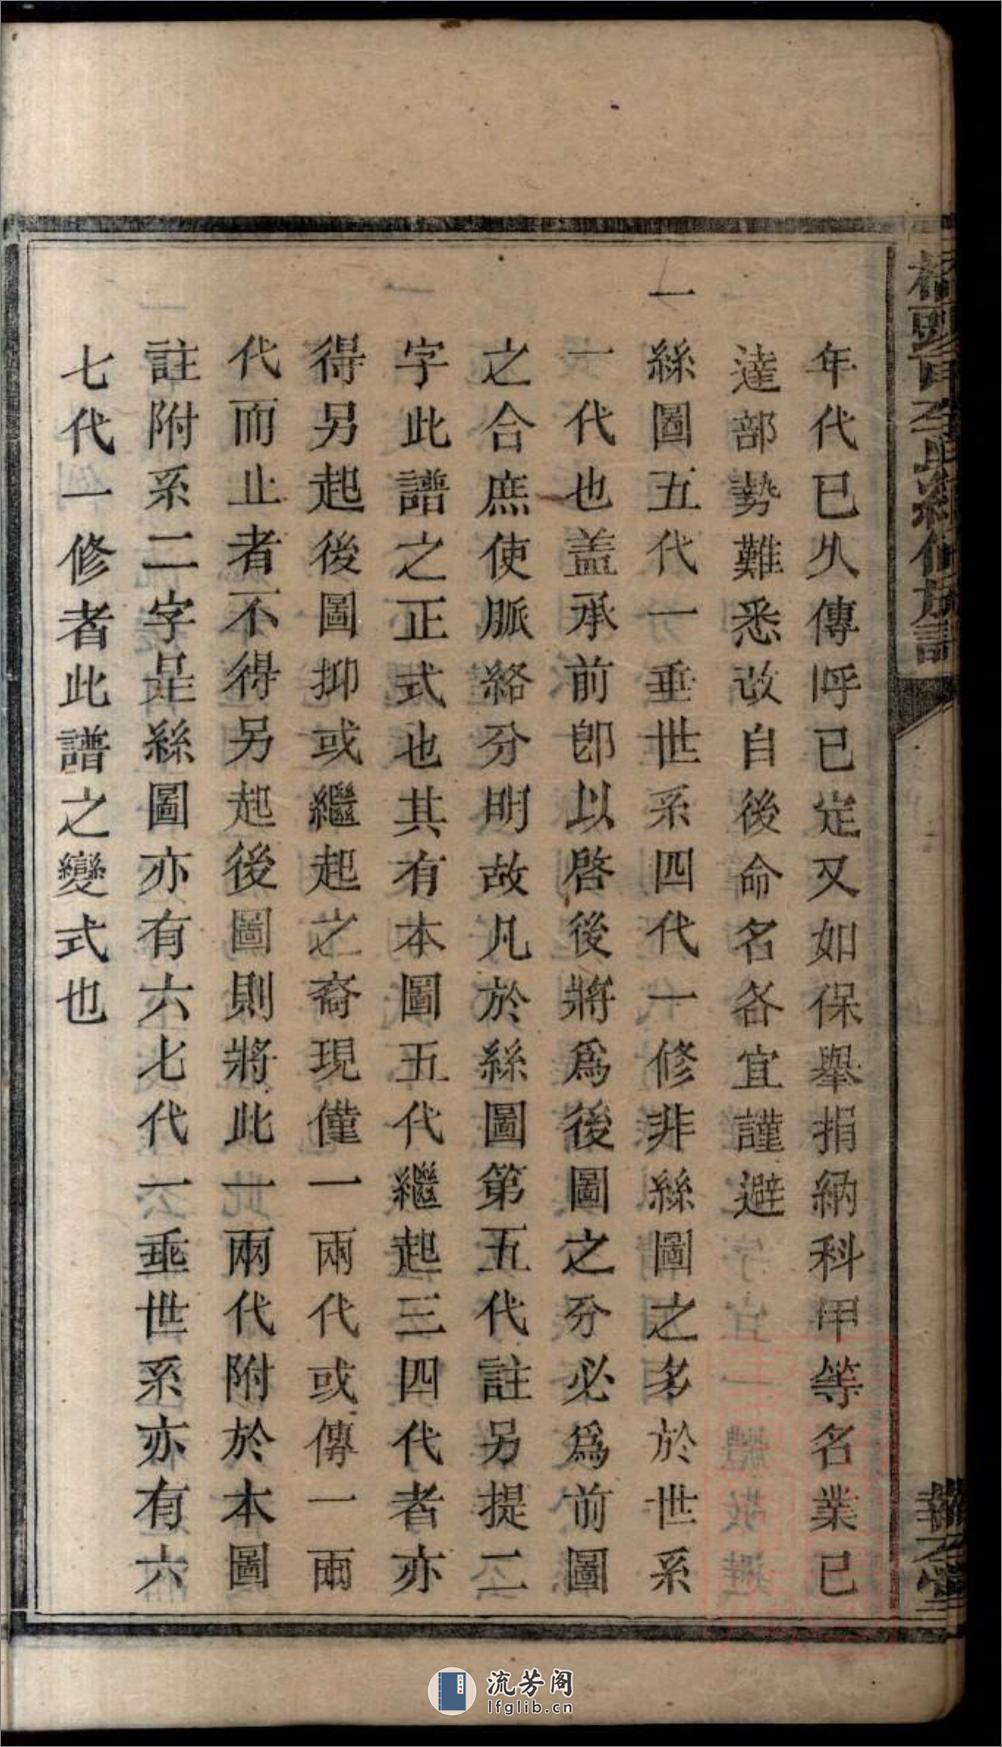 年代已久傳呼已定又如保舉捐納科甲等名業已
達部勢難悉改自後命名各宜謹避
一絲圖五代一垂世系四代一修非絲圖之多於世系
一代也盖承前卽以啓後將爲後圖之分必爲前圖
之合庶使脈絡分明故凡於絲圖第五代註另提二
字此譜之正式也其有本圖五代繼起三四代者亦
得另起後圖抑或繼起之裔現僅一兩代或傳一兩
代而止者不得另起後圖則將此一兩代附於本圖
註附系二字是絲圖亦有六七代一垂世系亦有六
七代一修者此譜之變式也
流芳阁
lfglib.cn